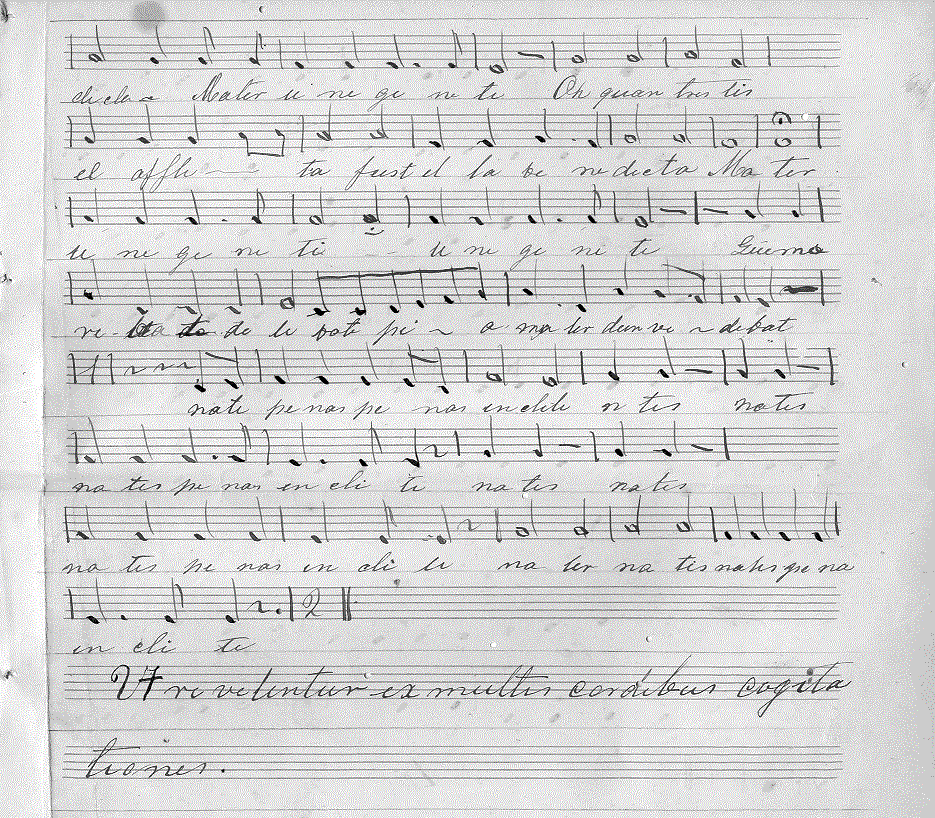 dicta Mater u ne ge ni te Oh quan tris tis
el affli ta fust el la be ne dicta Ma ter
u ne ge ni ti u ne ge ni te
re de le bate pi a ma ter dum ve debat
nate penas pe nas in cliti n tis natis
na tis pe nas in cli ti na tis na tis
na tis pe nas in cli ti na ter na tis natis pe na
in cli te
Ut revelentur ex multis cordibus cogita
tiones.